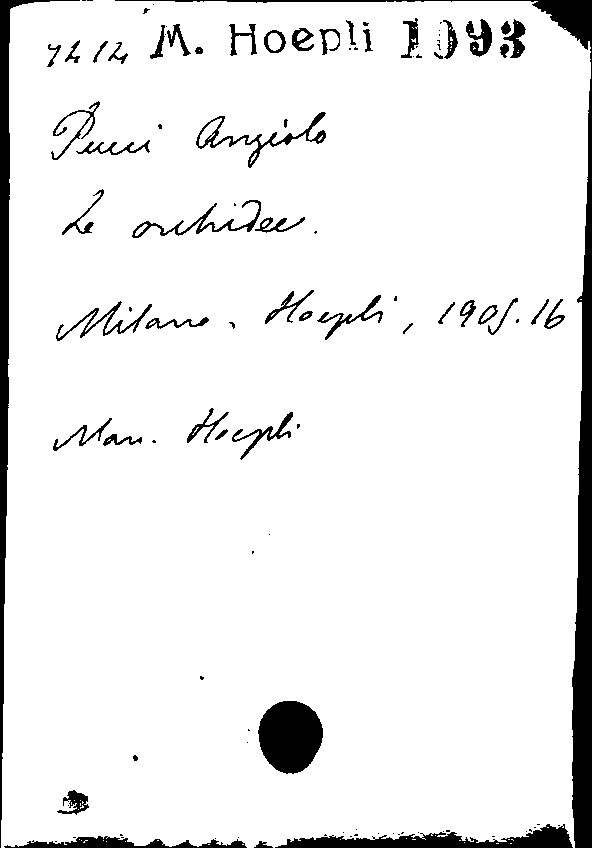 7214 M. Hoepli 1093
Pucci Angiolo
Le orchidee.
Milano, Hoepli, 1905. 16°
Man. Hoepli